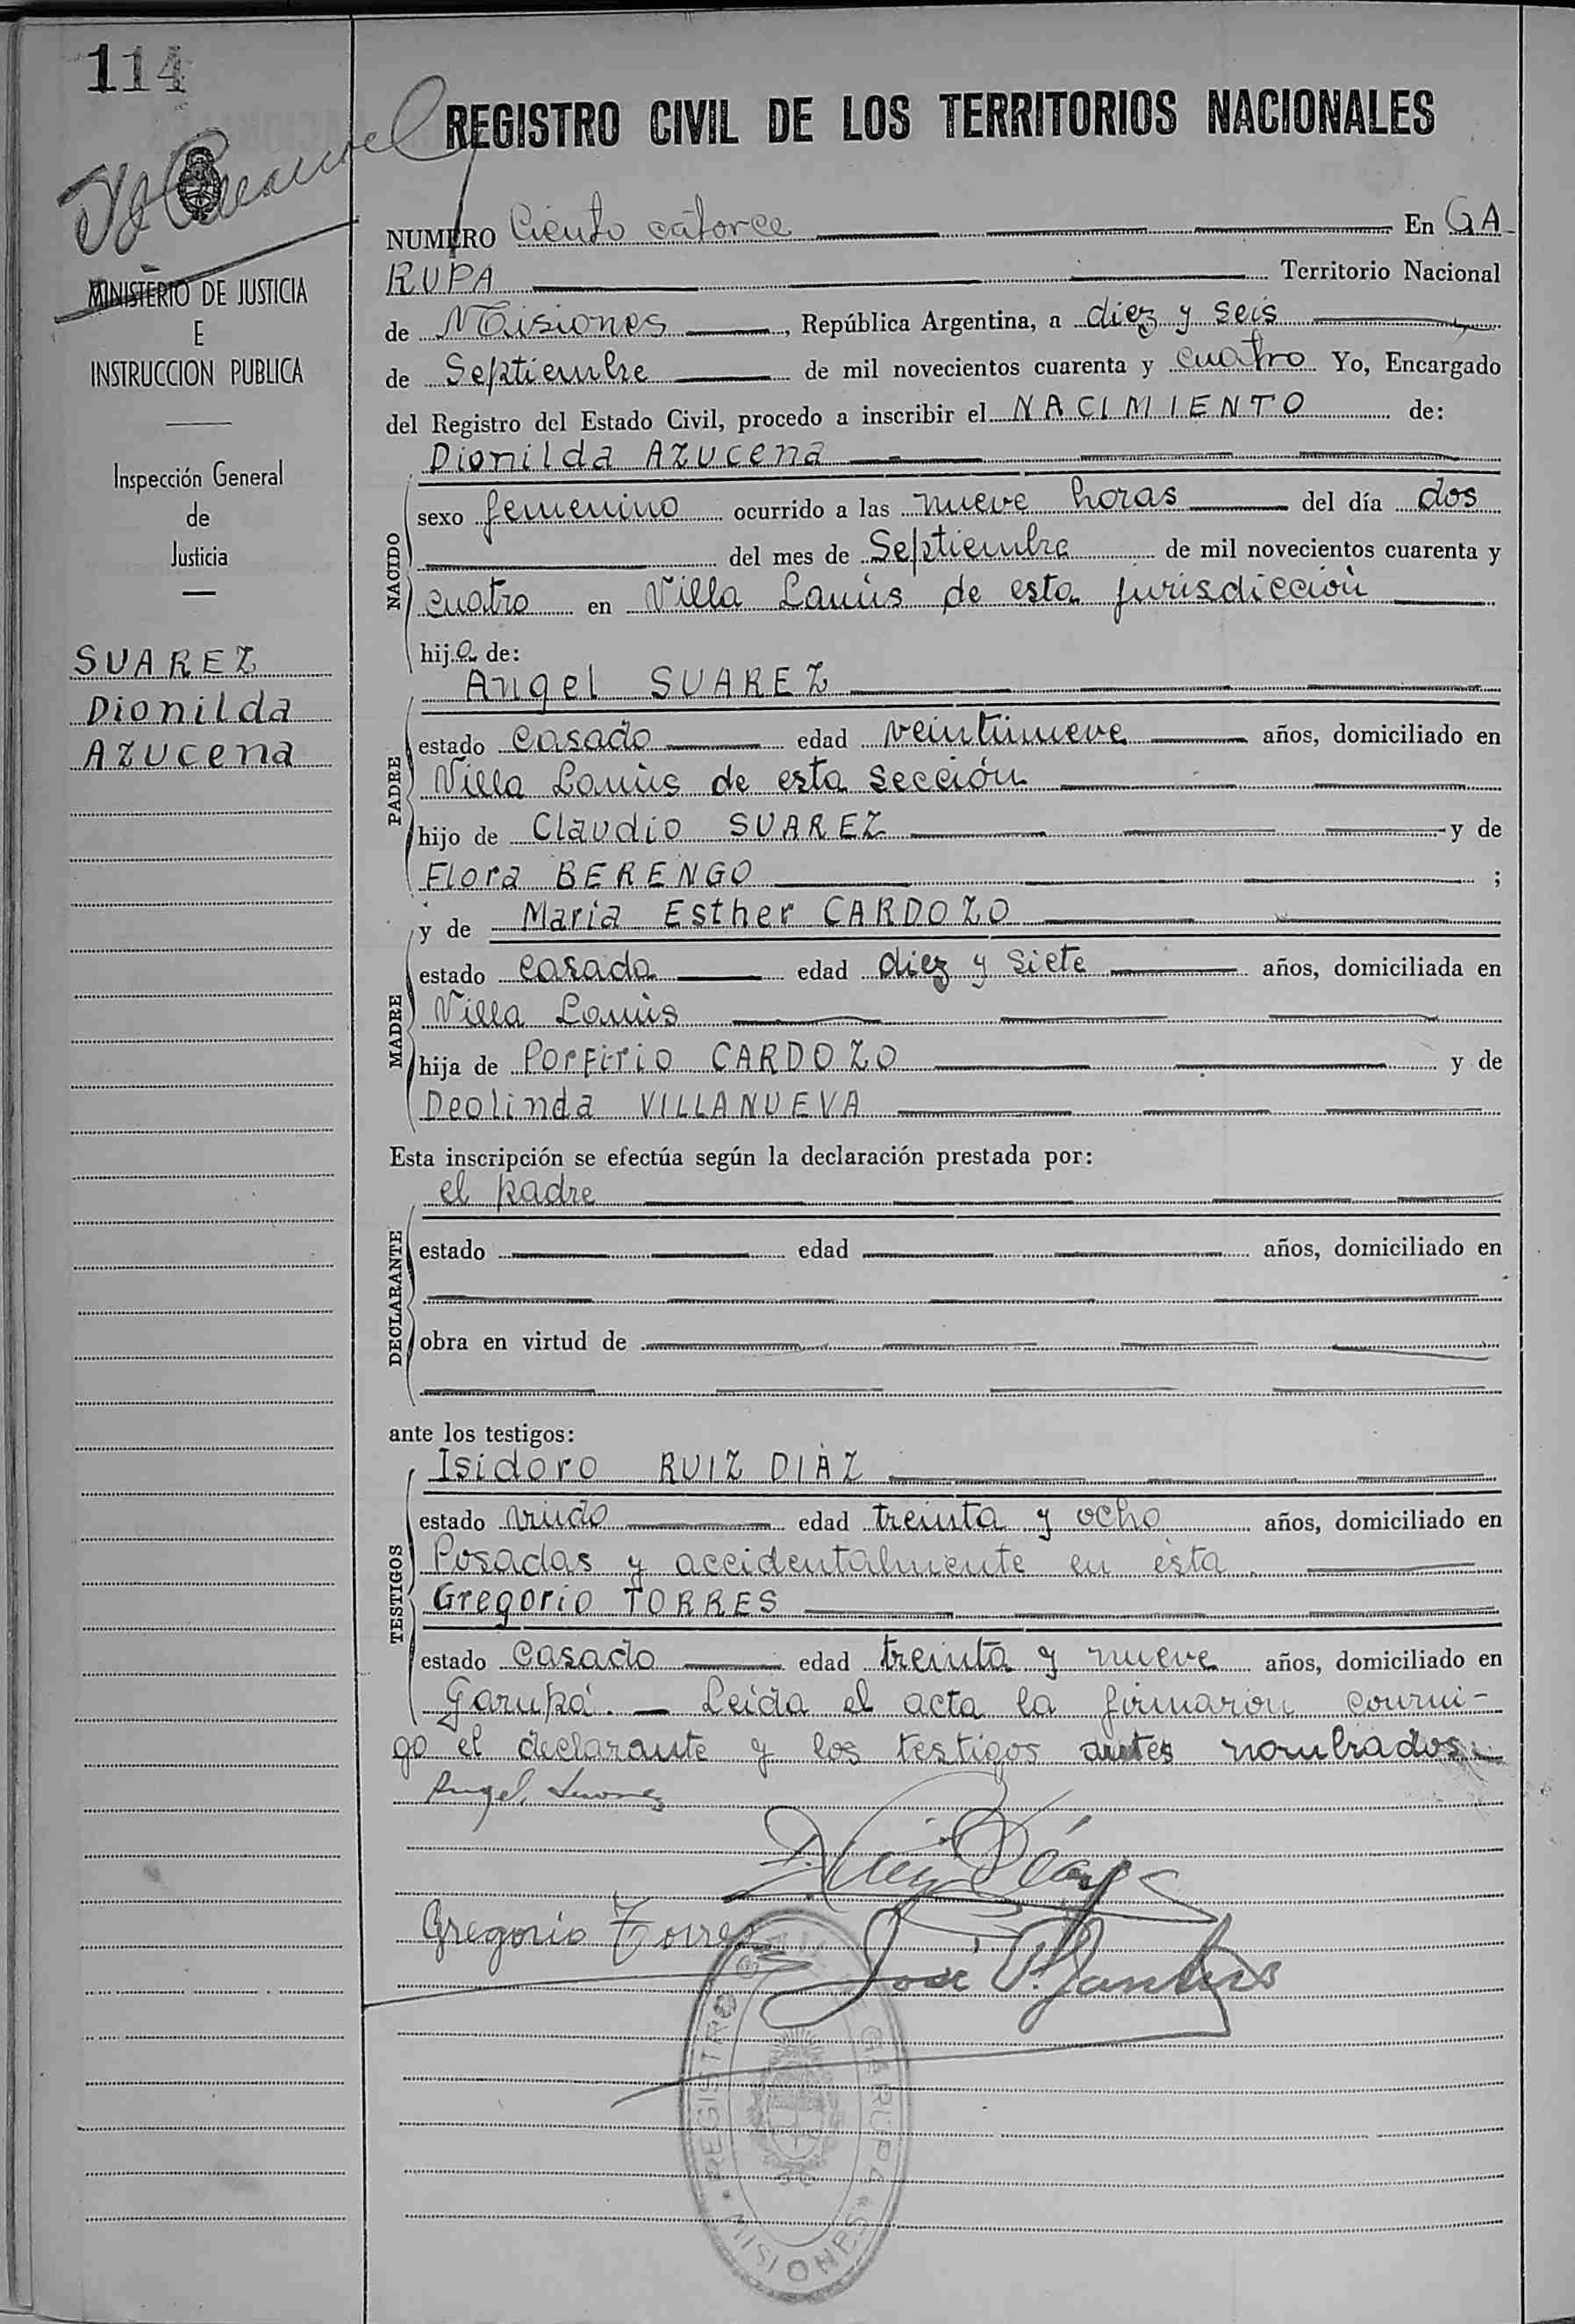 114
REGISTRO CIVIL DE LOS TERRITORIOS NACIONALES
MINISTERIO DE JUSTICIA
E
INSTRUCCION PUBLICA
Inspección General
de
Justicia
SUAREZ
Dionilda
Azucena
NUMERO Ciento catorce En GA-
RUPA Territorio Nacional
de Misiones, República Argentina, a diez y seis
de Septiembre de mil novecientos cuarenta y cuatro Yo, Encargado
del Registro del Estado Civil, procedo a inscribir el NACIMIENTO de:
Dionilda Azucena
NACIDO
sexo femenino ocurrido a las nueve horas del día dos
del mes de Septiembre de mil novecientos cuarenta y
cuatro en Villa Lanús de esta jurisdicción
hija de:
Angel SUAREZ
PADRE
estado casado edad veintinueve años, domiciliado en
Villa Lanús de esta sección
hijo de Claudio SUAREZ y de
Flora BERENGO ;
y de Maria Esther CARDOZO
MADRE
estado casada edad diez y siete años, domiciliada en
Villa Lanús
hija de Porfirio CARDOZO y de
Deolinda VILLANUEVA
Esta inscripción se efectúa según la declaración prestada por:
el padre
DECLARANTE
estado edad años, domiciliado en
obra en virtud de
ante los testigos:
Isidoro RUIZ DIAZ
TESTIGOS
estado viudo edad treinta y ocho años, domiciliado en
Posadas y accidentalmente en ésta.
Gregorio TORRES
estado casado edad treinta y nueve años, domiciliado en
Garupá. — Leída el acta la firmaron conmi-
go el declarante y los testigos antes nombrados.
Angel Suarez
Ruiz Díaz
Gregorio Torres
José
REGISTRO CIVIL
GARUPA
* MISIONES *